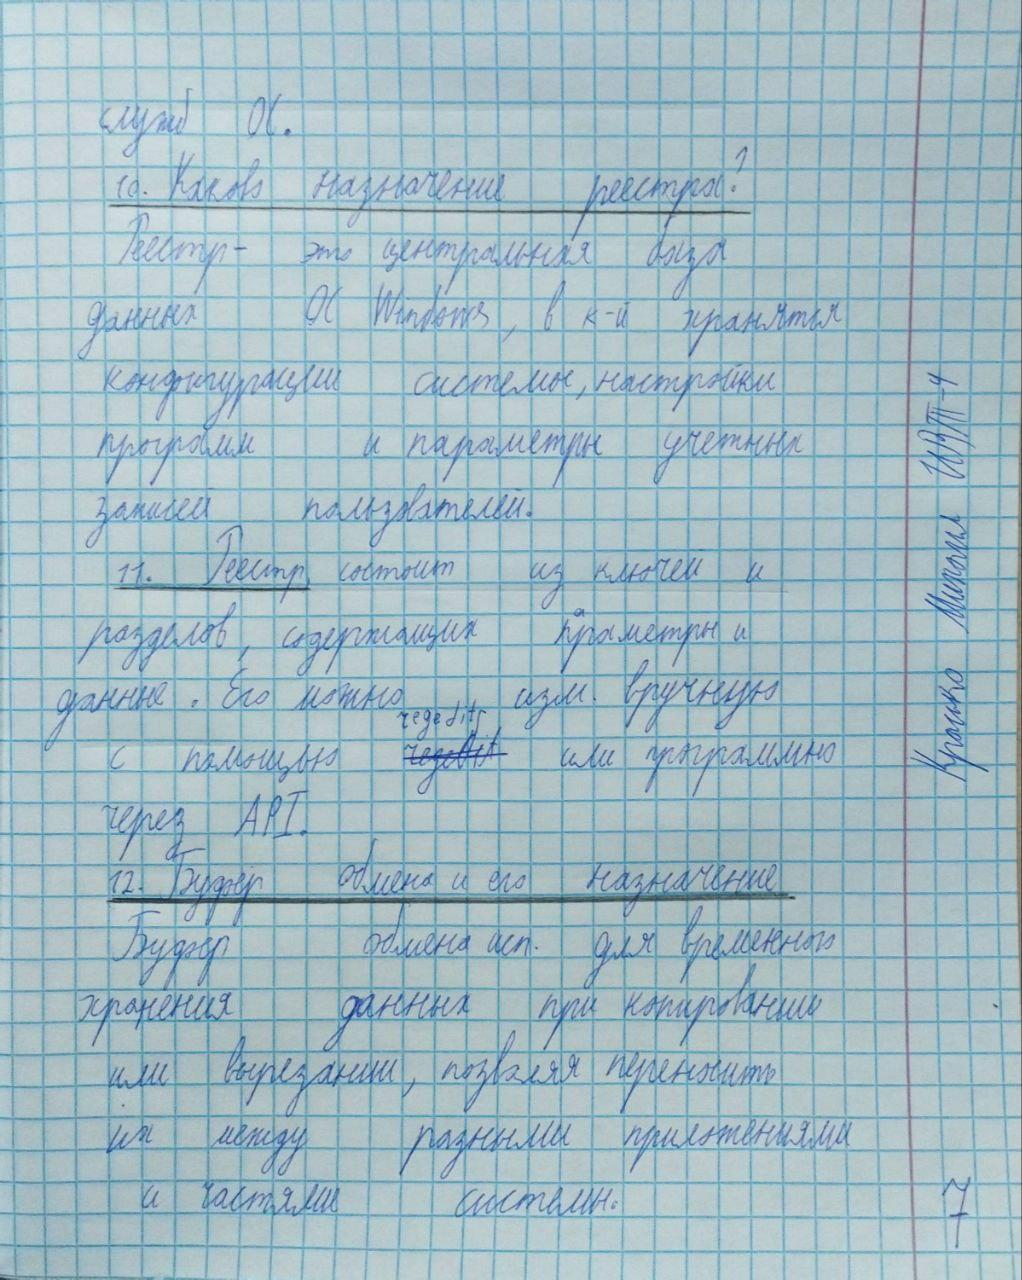 служб ОС.
10. Каково назначение реестра?
Реестр - это центральная база
данных ОС Windows, в к-й хранятся
конфигурации системы, настройки
программ и параметры учетных
записей пользователей.
11. Реестр состоит из ключей и
разделов, содержащих параметры и
данные. Его можно изм. вручную
с помощью regedit или программно
через API.
12. Буфер обмена и его назначение
Буфер обмена исп. для временного
хранения данных при копировании
или вырезании, позволяя переносить
их между разными приложениями
и частями системы.
Михаил ИВТ-4
7